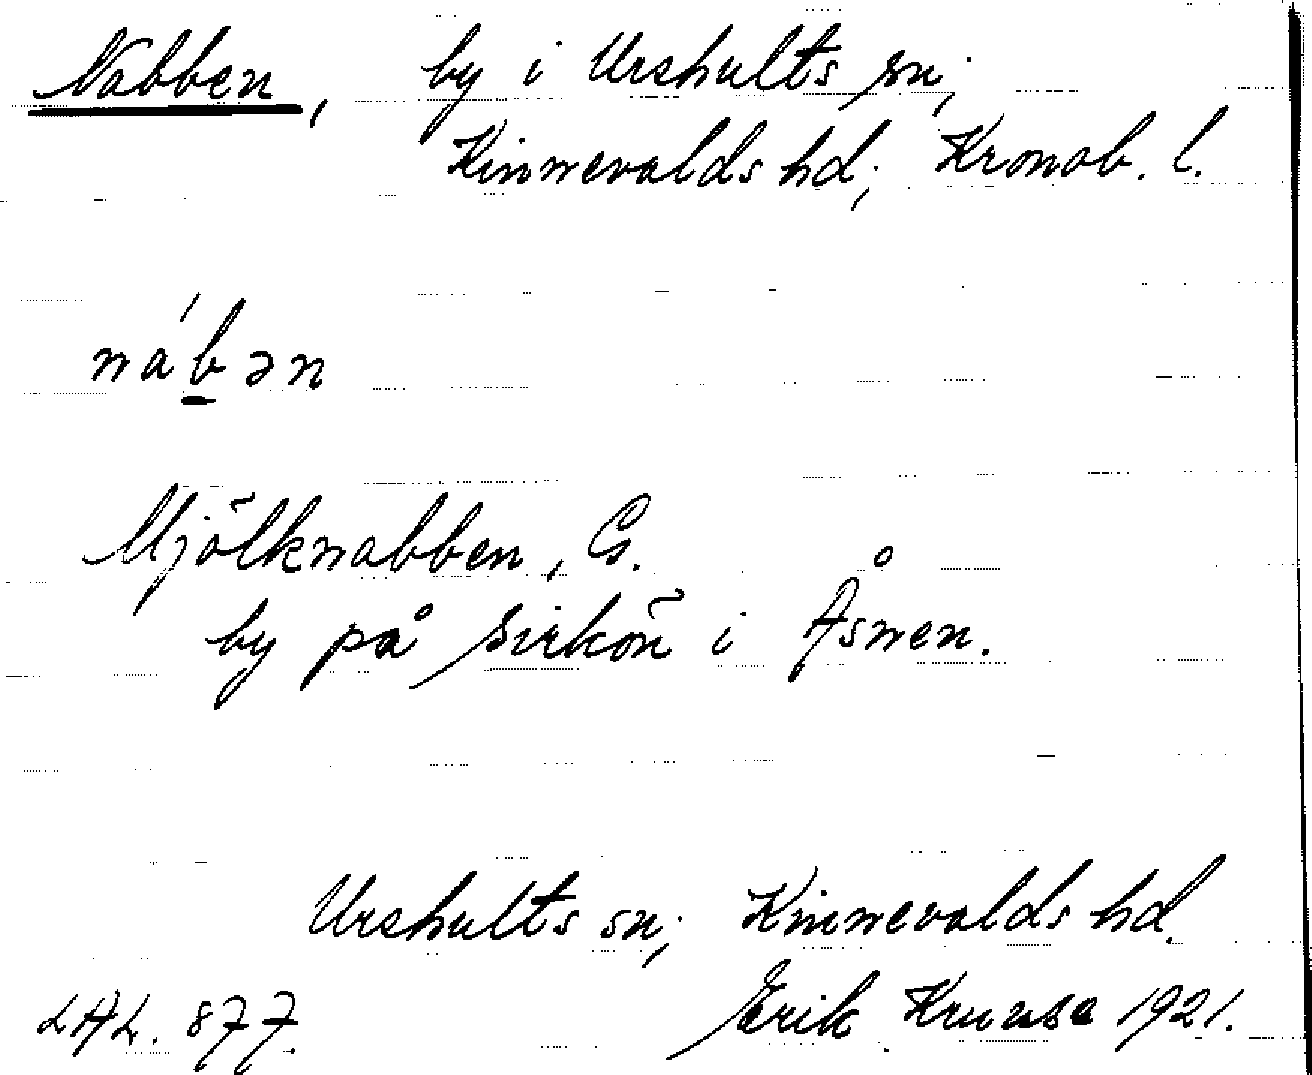 Nabben, by i Urshults sn;
Kinnevalds hd; Kronob. l.
na'b̲ən
Mjölknabben, G.
by på Sirkön i Åsnen.
Urshults sn; Kinnevalds hd.
LAL. 877. Erik Kruuse 1921.